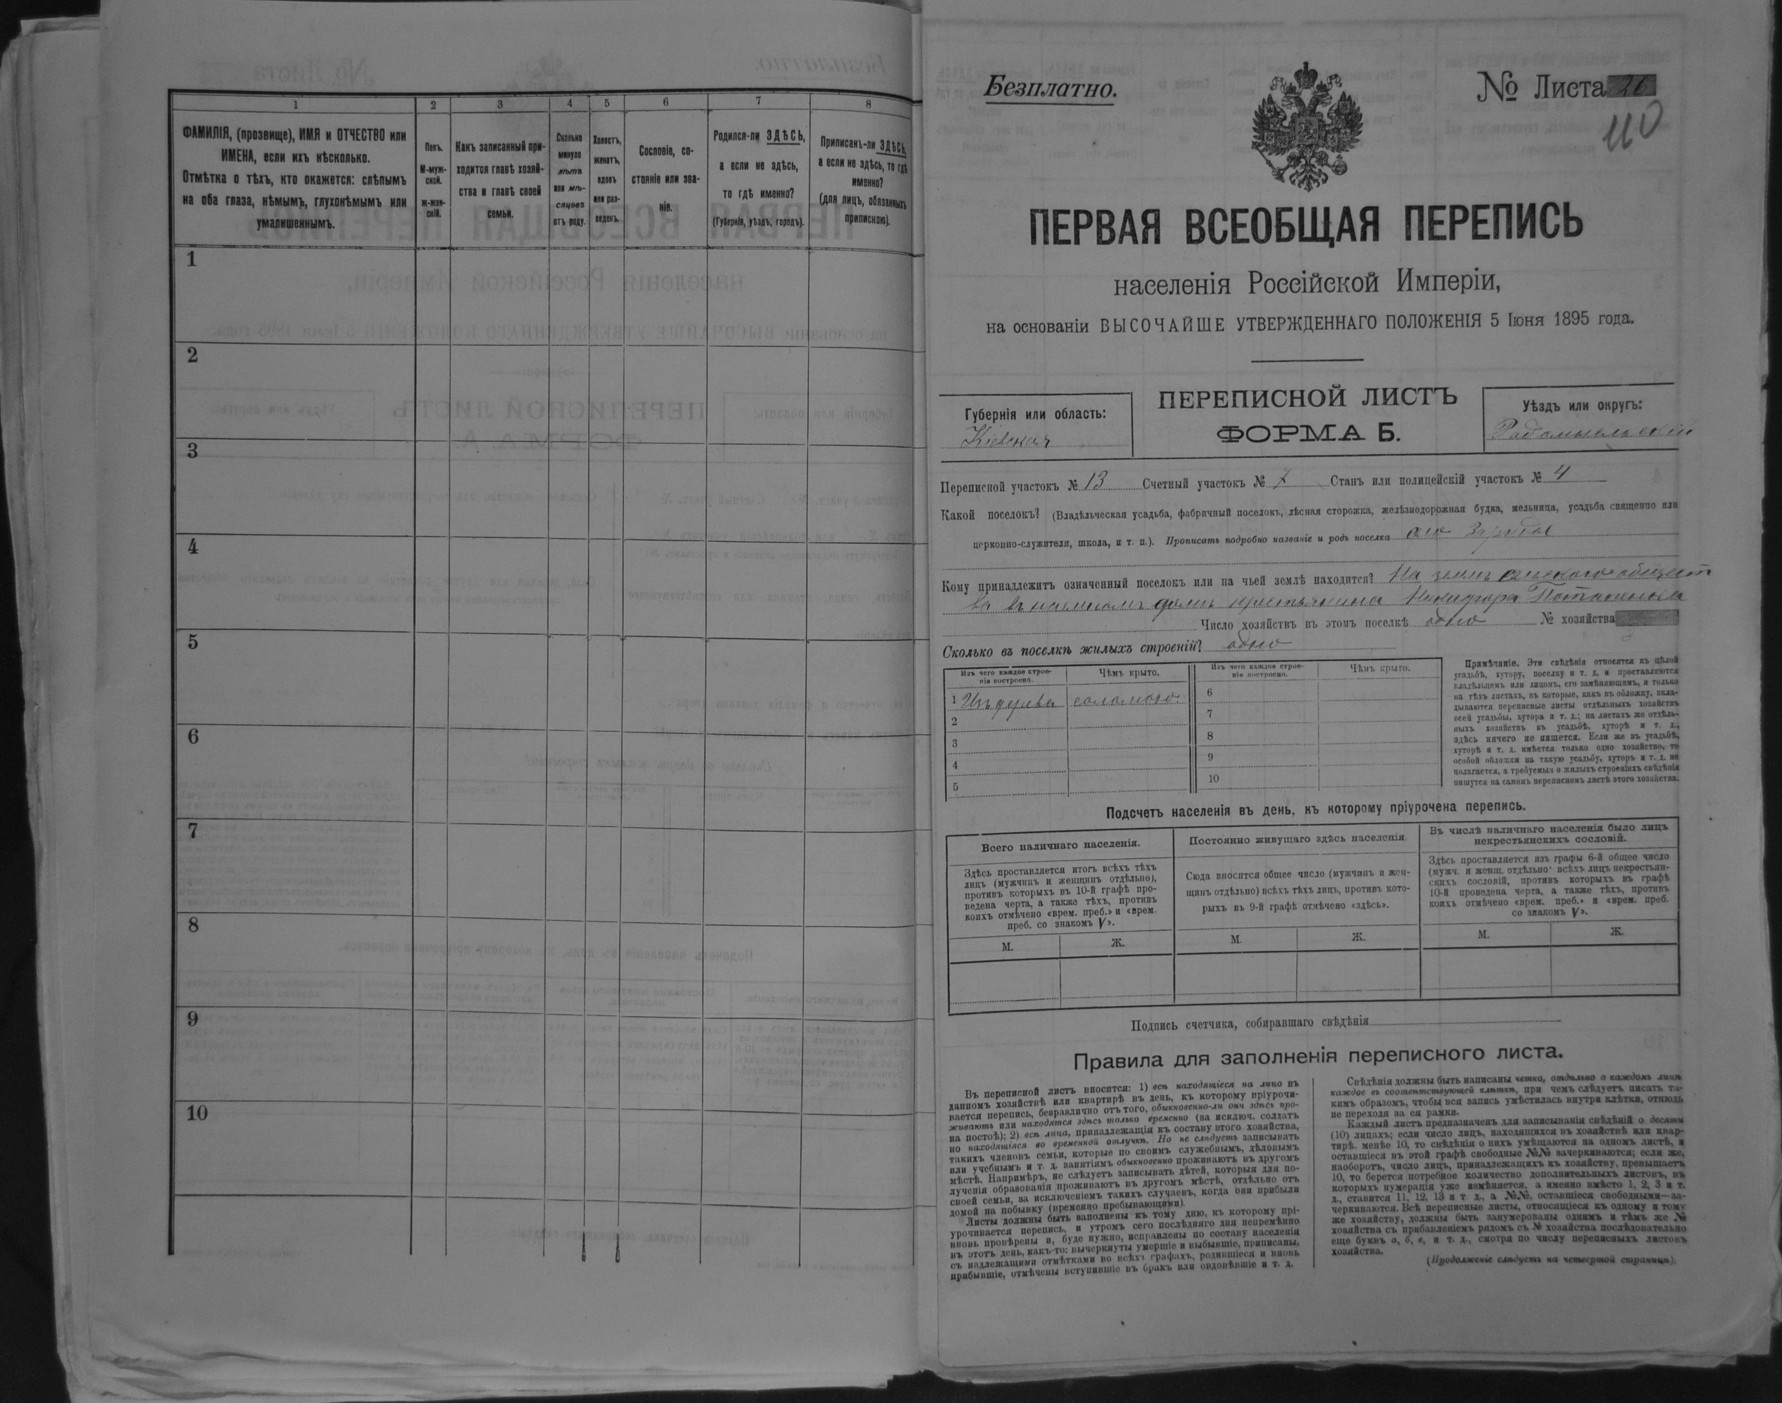 1 2 3 4 5 6 7 8
ФАМИЛІЯ, (прозвище), ИМЯ и ОТЧЕСТВО или
ИМЕНА, если ихъ нѣсколько.
Отмѣтка о тѣхъ, кто окажется: слѣпымъ
на оба глаза, нѣмымъ, глухонѣмымъ или
умалишеннымъ.
Полъ.
М-муж-
ской.
Ж-жен-
скій.
Какъ записанный при-
ходится главѣ хозяй-
ства и главѣ своей
семьи.
Сколько
минуло
лѣтъ
или мѣ-
сяцевъ
отъ роду.
Холостъ,
женатъ,
вдовъ
или раз-
веденъ.
Сословіе, со-
стояніе или зва-
ніе.
Родился-ли ЗДѢСЬ,
а если не здѣсь,
то гдѣ именно?
(Губернія, уѣздъ, городъ).
Приписанъ-ли ЗДѢСЬ,
а если не здѣсь, то гдѣ
именно?
(для лицъ, обязанныхъ
припискою).
1
2
3
4
5
6
7
8
9
10
Безплатно.
№ Листа 26
110
ПЕРВАЯ ВСЕОБЩАЯ ПЕРЕПИСЬ
населенія Россійской Имперіи,
на основаніи ВЫСОЧАЙШЕ УТВЕРЖДЕННАГО ПОЛОЖЕНІЯ 5 Іюня 1895 года.
Губернія или область:
Кіевская
ПЕРЕПИСНОЙ ЛИСТЪ
ФОРМА Б.
Уѣздъ или округъ:
Радомысльскій
Переписной участокъ № 13 Счетный участокъ № 7 Станъ или полицейскій участокъ № 4
Какой поселокъ? (Владѣльческая усадьба, фабричный поселокъ, лѣсная сторожка, желѣзнодорожная будка, мельница, усадьба священно или
церковно-служителя, школа, и т. п.). Прописать подробно названіе и родъ поселка
Кому принадлежитъ означенный поселокъ или на чьей землѣ находится? На землѣ сельскаго обществ
ва въ наемномъ домѣ крестьянина Никифора
Число хозяйствъ въ этомъ поселкѣ одно № хозяйства
Сколько въ поселкѣ жилыхъ строеній? одно
Изъ чего каждое строе-
ніе построено.
Чѣмъ крыто.
Изъ чего каждое строе-
ніе построено.
Чѣмъ крыто.
1 Изъ дерева соломою.
2
3
4
5
6
7
8
9
10
Примѣчаніе. Эти свѣдѣнія относятся къ цѣлой
усадьбѣ, хутору, поселку и т. д. и проставляются
владѣльцемъ или лицомъ, его замѣняющимъ, и только
на тѣхъ листахъ, въ которые, какъ въ обложку, вкла-
дываются переписные листы отдѣльныхъ хозяйствъ
всей усадьбы, хутора и т. д.; на листахъ же отдѣль-
ныхъ хозяйствъ въ усадьбѣ, хуторѣ и т. д.,
здѣсь ничего не пишется. Если же въ усадьбѣ,
хуторѣ и т. д. имѣется только одно хозяйство, то
особой обложки на такую усадьбу, хуторъ и т. д. не
полагается, а требуемыя о жилыхъ строеніяхъ свѣдѣнія
пишутся на самомъ переписномъ листѣ этого хозяйства.
Подсчетъ населенія въ день, къ которому пріурочена перепись.
Всего наличнаго населенія.
Здѣсь проставляется итогъ всѣхъ тѣхъ
лицъ (мужчинъ и женщинъ отдѣльно),
противъ которыхъ въ 10-й графѣ про-
ведена черта, а также тѣхъ, противъ
коихъ отмѣчено «врем. преб.» и «врем.
преб. со знакомъ V».
Постоянно живущаго здѣсь населенія.
Сюда вносится общее число (мужчинъ и жен-
щинъ отдѣльно) всѣхъ тѣхъ лицъ, противъ кото-
рыхъ въ 9-й графѣ отмѣчено «здѣсь».
Въ числѣ наличнаго населенія было лицъ
некрестьянскихъ сословій.
Здѣсь проставляется изъ графы 6-й общее число
(мужч. и женщ. отдѣльно) всѣхъ лицъ некрестьян-
скихъ сословій, противъ которыхъ въ графѣ
10-й проведена черта, а также тѣхъ, противъ
коихъ отмѣчено «врем. преб.» и «врем. преб.
со знакомъ V».
М. Ж. М. Ж. М. Ж.
Подпись счетчика, собиравшаго свѣдѣнія
Правила для заполненія переписного листа.
Въ переписной листъ вносятся: 1) всѣ находящіеся на лицо въ
данномъ хозяйствѣ или квартирѣ въ день, къ которому пріурочи-
вается перепись, безразлично отъ того, обыкновенно-ли они здѣсь про-
живаютъ или находятся здѣсь только временно (за исключ. солдатъ
на постоѣ); 2) всѣ лица, принадлежащія къ составу этого хозяйства,
но находящіяся во временной отлучкѣ. Но не слѣдуетъ записывать
такихъ членовъ семьи, которые по своимъ служебнымъ, дѣловымъ
или учебнымъ и т. д. занятіямъ обыкновенно проживаютъ въ другомъ
мѣстѣ. Напримѣръ, не слѣдуетъ записывать дѣтей, которыя для по-
лученія образованія проживаютъ въ другомъ мѣстѣ, отдѣльно отъ
своей семьи, за исключеніемъ такихъ случаевъ, когда они прибыли
домой на побывку (временно пребывающими).
Листы должны быть заполнены къ тому дню, къ которому прі-
урочивается перепись, и утромъ сего послѣдняго дня непремѣнно
вновь провѣрены и, буде нужно, исправлены по составу населенія
въ этотъ день, какъ-то: вычеркнуты умершіе и выбывшіе, приписаны,
съ надлежащими отмѣтками во всѣхъ графахъ, родившіеся и вновь
прибывшіе, отмѣчены вступившіе въ бракъ или овдовѣвшіе и т. д.
Свѣдѣнія должны быть написаны четко, отдѣльно о каждомъ лицѣ
каждое въ соотвѣтствующей клѣткѣ, при чемъ слѣдуетъ писать та-
кимъ образомъ, чтобы вся запись умѣстилась внутри клѣтки, отнюдь
не переходя за ея рамки.
Каждый листъ предназначенъ для записыванія свѣдѣній о десяти
(10) лицахъ; если число лицъ, находящихся въ хозяйствѣ или квар-
тирѣ, менѣе 10, то свѣдѣнія о нихъ умѣщаются на одномъ листѣ, и
оставшіеся въ этой графѣ свободные №№ зачеркиваются; если же,
наоборотъ, число лицъ, принадлежащихъ къ хозяйству, превышаетъ
10, то берется потребное количество дополнительныхъ листовъ, въ
которыхъ нумерація уже измѣняется, а именно вмѣсто 1, 2, 3 и т.
д., ставится 11, 12, 13 и т. д., а №№, оставшіеся свободными—за-
черкиваются. Всѣ переписные листы, относящіеся къ одному и тому
же хозяйству, должны быть занумерованы однимъ и тѣмъ же №
хозяйства съ прибавленіемъ рядомъ съ № хозяйства послѣдовательно
еще буквъ а, б, в, и т. д., смотря по числу переписныхъ листовъ
хозяйства.
(Продолженіе слѣдуетъ на четвертой страницѣ).